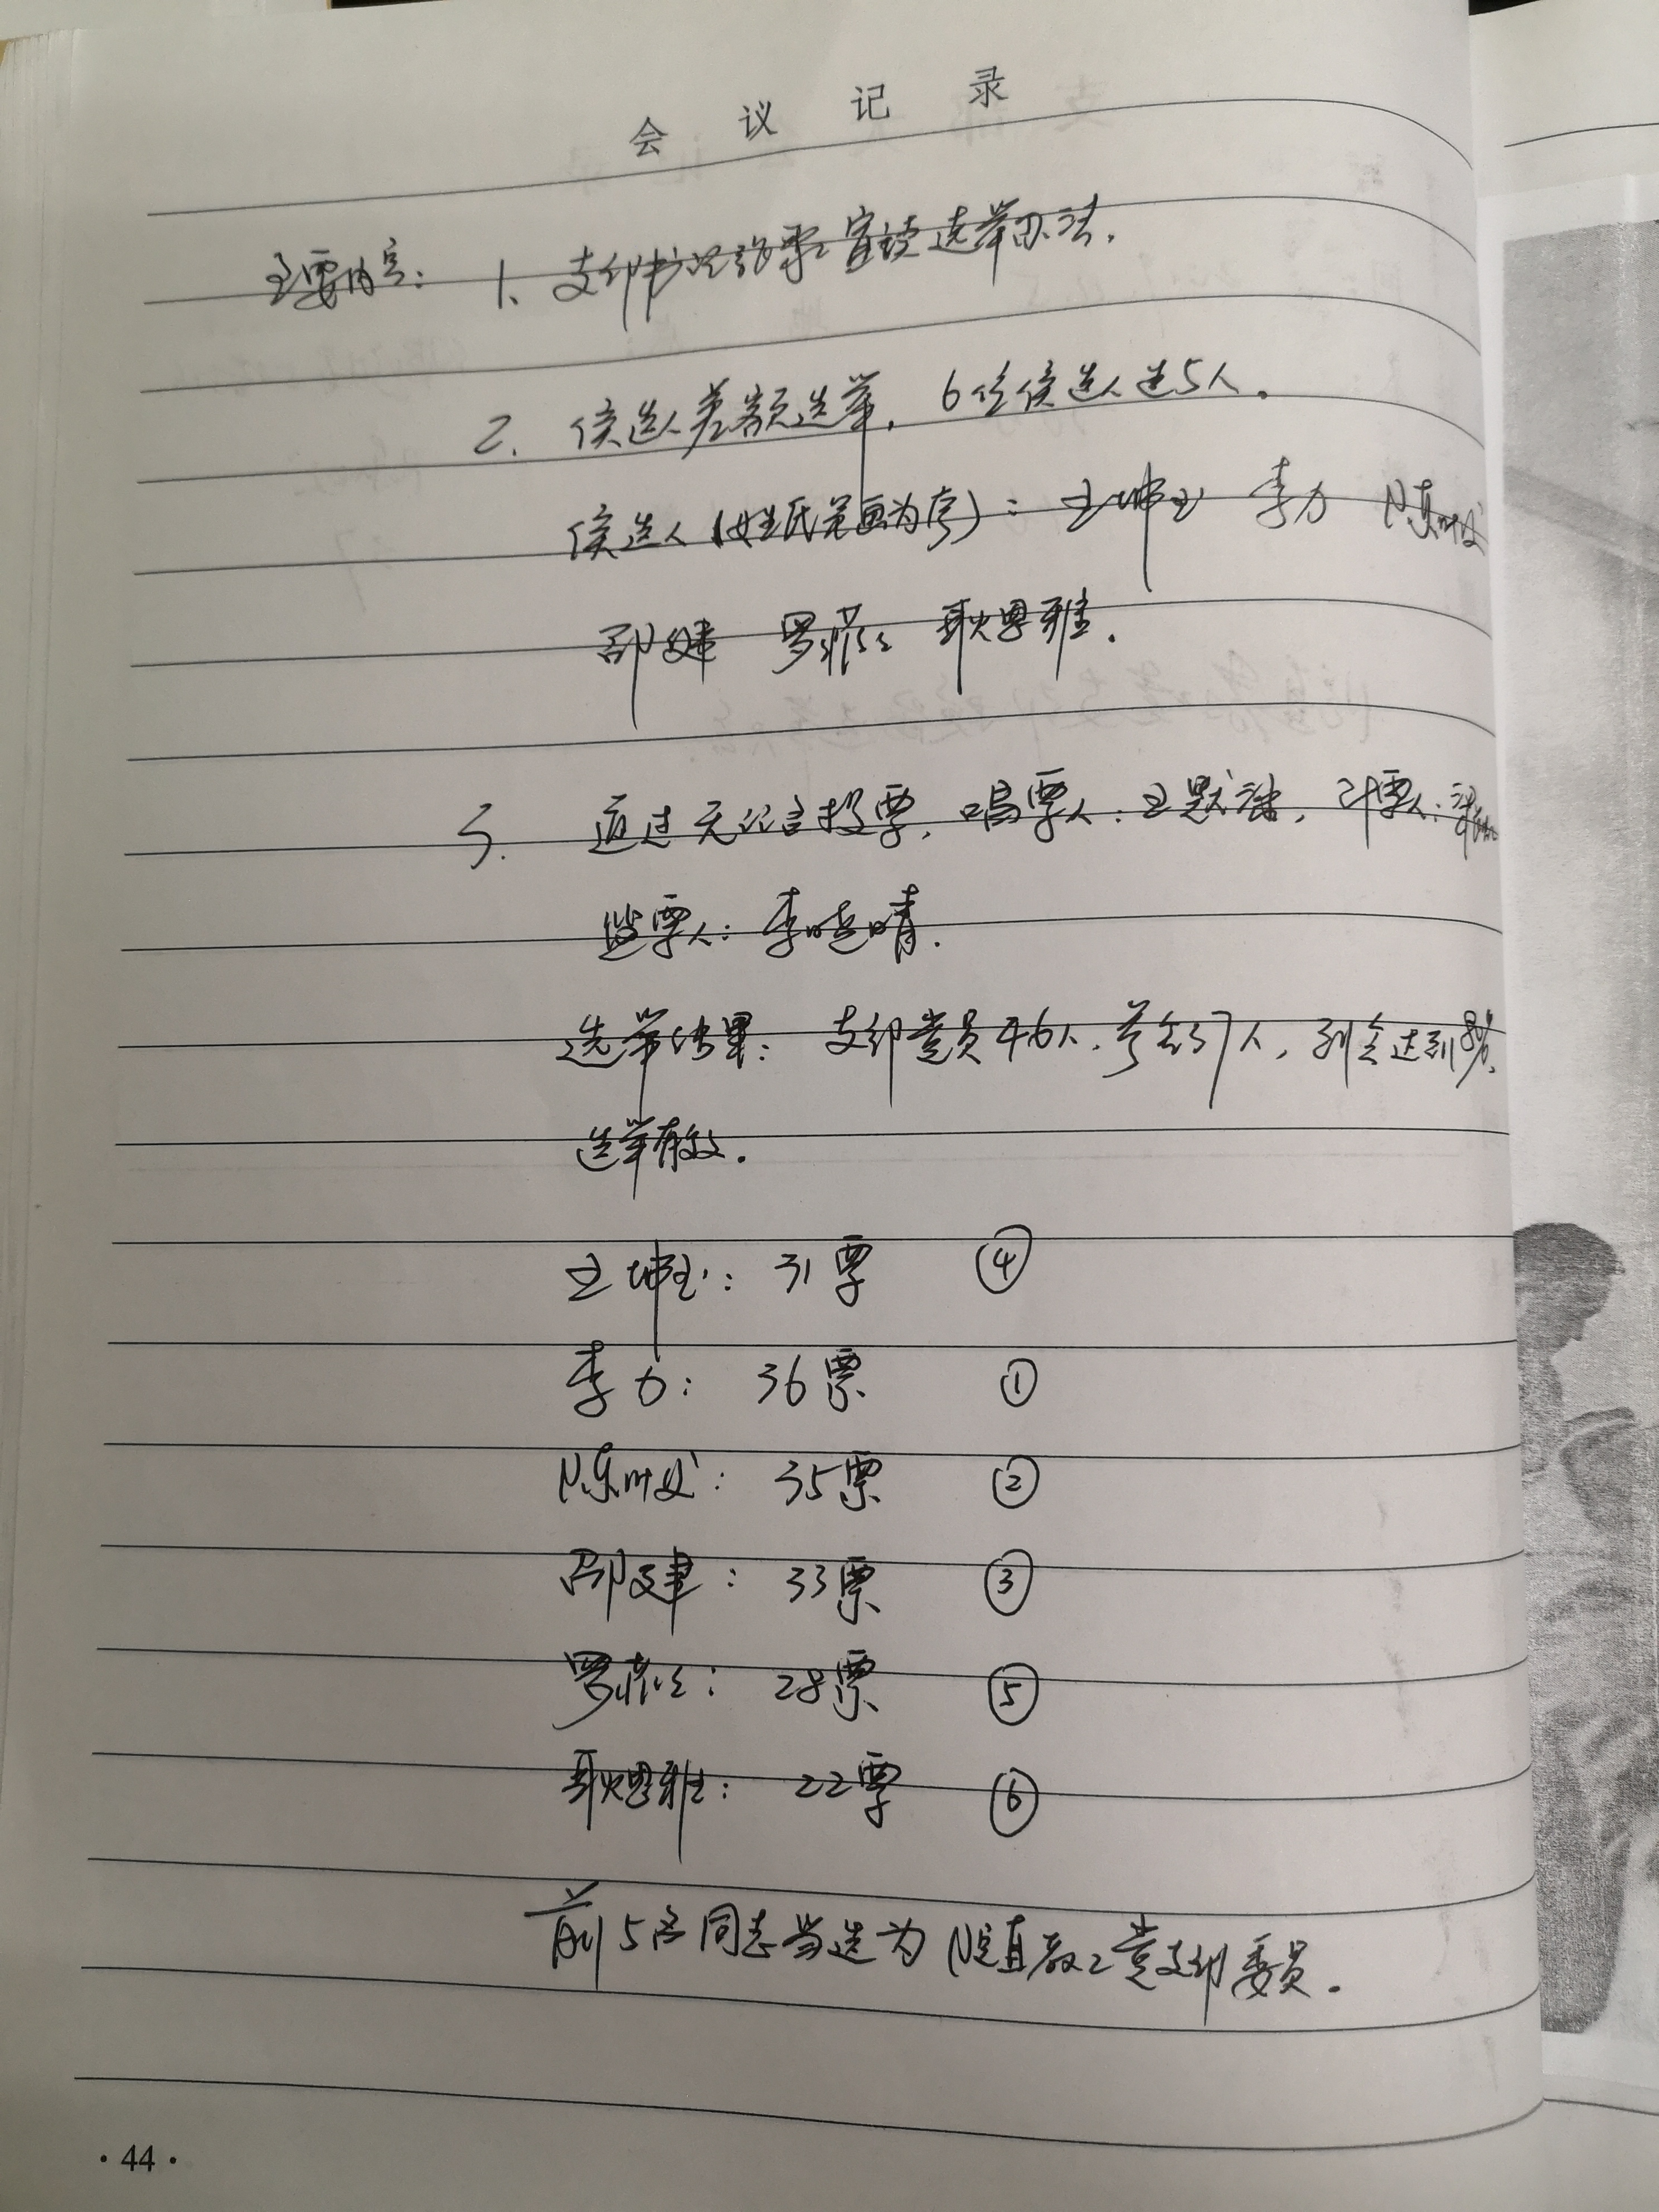 会议记录
主要内容: 1、支部书记张翠宣读选举办法.
2. 候选人差额选举, 6位候选人选5人.
候选人(以姓氏笔画为序): 王坤玉 李力 陈
邵建 罗 耿思雅.
3. 通过无记名投票, 唱票人: 王 , 计票人:
监票人: 李晓晴.
选举结果: 支部党员46人, 参会37人, 到会达到80%,
选举有效.
王坤玉: 31票 ④
李力: 36票 ①
陈 : 35票 ②
邵建: 33票 ③
罗 : 28票 ⑤
耿思雅: 22票 ⑥
前5名同志当选为院直教工党支部委员.
· 44 ·